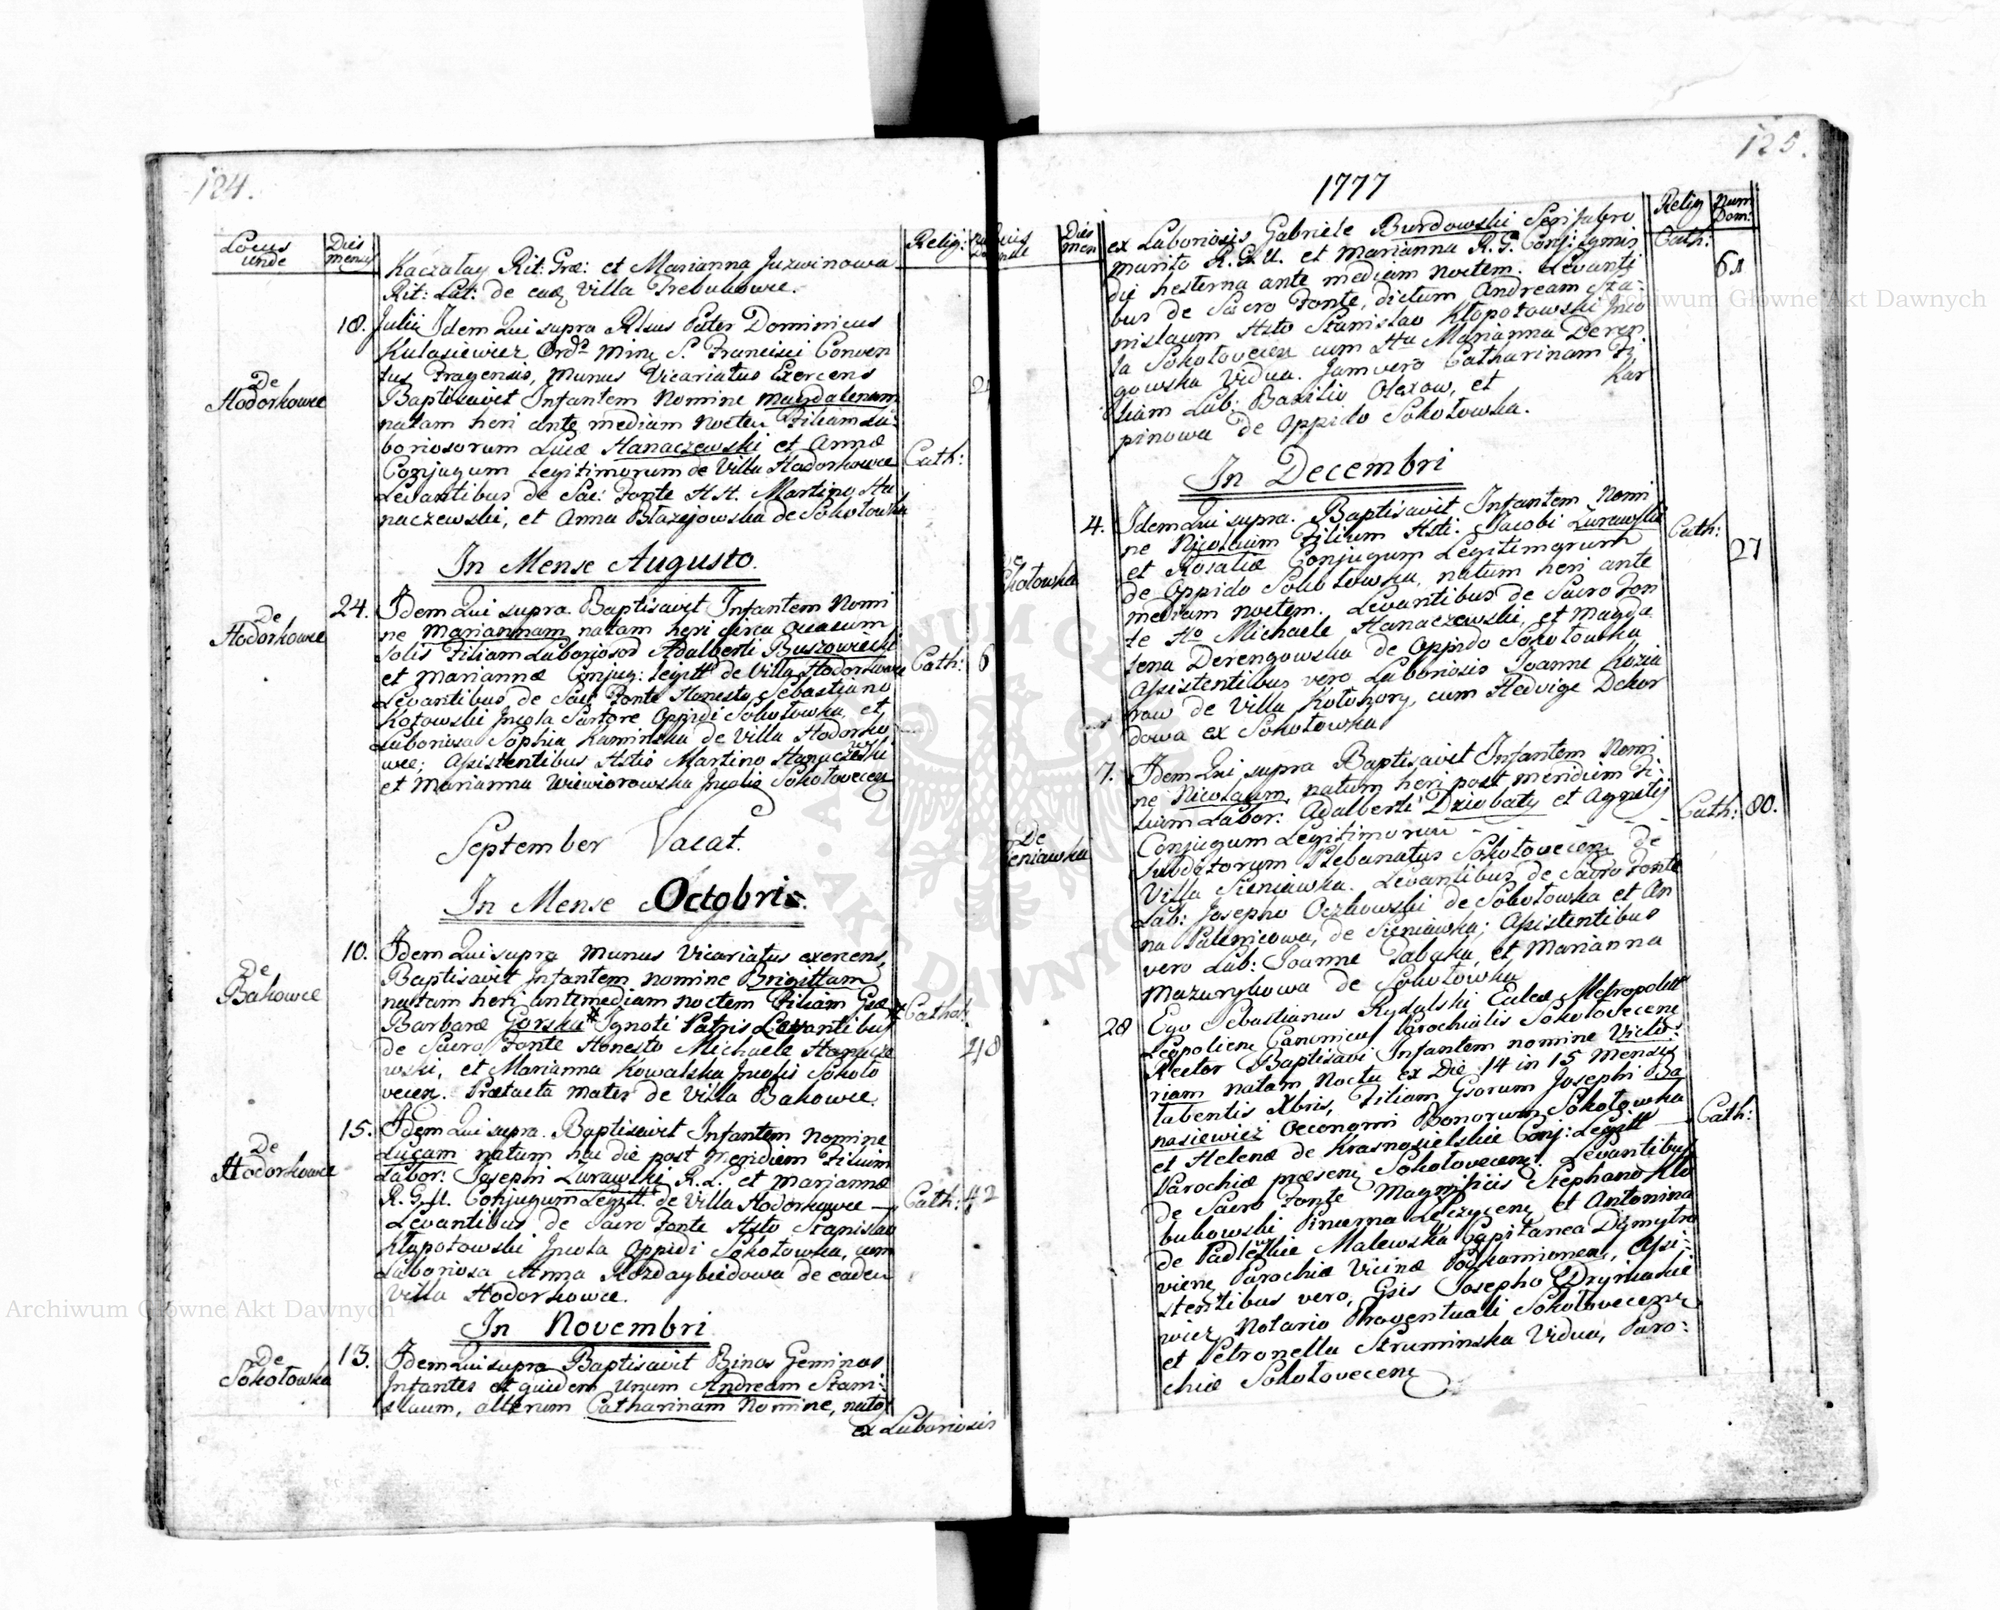 124.
Locus unde
Dies mensis
Relig:
Kaczałay Rit: Græ: et Marianna Juzwinowa
Rit: Lat: de eadẽ Villa Trebuhowce.
De Hodorkowce
18. Julii Idem Qui supra Rlsus Pater Dominicus
Kulasiewicz Ordis Minõ S. Francisci Conven
tus Pragensis, Munus Vicariatus Exercens
Baptisavit Infantem Nomine Magdalenam
natam heri ante mediam noctem Filiam La:
boriosorum Lucæ Hanaczewski et Annæ
Conjugum legitimorum de Villa Hodorkowce Cath:
Levantibus de Sac: Fonte H.H. Martino Ha
naczewski, et Anna Błazejowska de Sokołowka
In Mense Augusto.
De Hodorkowce
24. Idem Qui supra. Baptisavit Infantem Nomi
ne Mariannam natam heri circa Occasum
Solis Filiam Laborioson Adalberti Buszowiecki
et Mariannæ Conjug: legitt de Villa Hodorkowce Cath: 6
Levantibus de Sac Fonte Honesto Sebastiano
Kotowski Incola Sartore Oppidi Sokołowka, et
Laboriosa Sophia Kaminska de Villa Hodorko
wce; Assistentibus Hstis Martino Hanaczewski
et Marianna Wiewiorowska Incolis Sokołovecen
September Vacat.
In Mense Octobris.
De Bakowce
10. Idem Qui supra Munus Vicariatus exercens,
Baptisavit Infantem nomine Brigittam
natam heri ante mediam noctem Filiam Gsæ
Barbaræ Gorska Ignoti Patris Levantibus Cathol:
de Sacro Fonte Honesto Michaele Hanacze 48
wski, et Marianna Kowalska Incolis Sokoło
vecen. Prætacta Mater de Villa Bakowce.
De Hodorkowce
15. Idem Qui supra. Baptisavit Infantem Nomine
Lucam natum hac die post Meridiem Filium
Labor: Josephi Zurawski R.L. et Mariannæ
R.G.U. Conjugum Legitt. de Villa Hodorkowce Cath: 42
Levantibus de Sacro Fonte Hsto Stanislao
Kłopotowski Incola Oppidi Sokołowka, cum
Laboriosa Anna Rozdaybiedowa de eadem
Villa Hodorkowce.
In Novembri
De Sokołowka
13. Idem Qui supra Baptisavit Binos Geminos
Infantes et quidem Unum Andream Stani:
slaum, alterum Catharinam Nomine, natos
ex Laboriosis
125.
1777
Dies men
Relig
Num Dom:
ex Laboriosis Gabriele Burdowski Scrifabro Cath: 61
marito R.G.U. et Marianna R.G. Conj: Legmis
die hesterna ante mediam noctem. Levanti
bus de Sacro Fonte, dictum Andream Sta:
nislaum Hsto Stanislao Kłopotowski Inco
la Sokołovecen cum Hta Marianna Deren
gowska Vidua. Jam vero Catharinam Fi
liam Lab: Bazilio Oserow, et Kar
pinowa de Oppido Sokołowka.
In Decembri
4. Idem Qui supra. Baptisavit Infantem Nomi
ne Nicolaum Filium Hsti. Jacobi Zurawski Cath: 27
et Rosaliæ Conjugum Legitimorum
de Oppido Sokołowka, natum heri ante
mediam noctem. Levantibus de Sacro Fon
te Hto Michaele Hanaczewski, et Magda
lena Derengowska de Oppido Sokołowka
Assistentibus vero Laboriosis Joanne Kozia
row de Villa Kołohory, cum Hedvige Dekor
dowa ex Sokołowka
7. Idem Qui supra Baptisavit Infantem Nomi
ne Nicolaum, natum heri post meridiem Fi
lium Labor: Adalberti Dziobaty et Agnetis Cath: 80.
Conjugum Legitimorum
Subditorum Plebanatus Sokołovecen de
Villa Sieniawka. Levantibus de Sacro Fonte
Lab: Josepho Oczkowski de Sokołowka et An
na Paleniczowa, de Sieniawka; Assistentibus
vero Lab: Joanne Tabaka, et Marianna
Mazurykowa de Sokołowka
28 Ego Sebastianus Rydzlski Eccleæ Metropolitt
Leopolien Canonicus Parochialis Sokołovecen
Rector Baptisavi Infantem nomine Victo:
riam natam Noctu ex Die 14 in 15 Mensis
labentis Xbris, Filiam Gsorum Josephi Ba
nasiewicz Oeconomi Bonorum Sokołowka Cath:
et Helenæ de Krasnosielskie Conj: Legitt
Parochiæ præsen Sokołovecen. Levantibus
de Sacro Fonte Magnificis Stephano Kło
bukowski Pincerna Lęczycen et Antonina
de Padlewskie Malewska Capitanea Dymytro
vien Parochiæ Vicinæ Pohamionen, Assi:
stentibus vero, Gsis Josepho Dryniasie
wicz Notario Proventuali Sokołovecen
et Petronella Struminska Vidua, Paro:
chiæ Sokołovecen
Archiwum Główne Akt Dawnych
Archiwum Główne Akt Dawnych